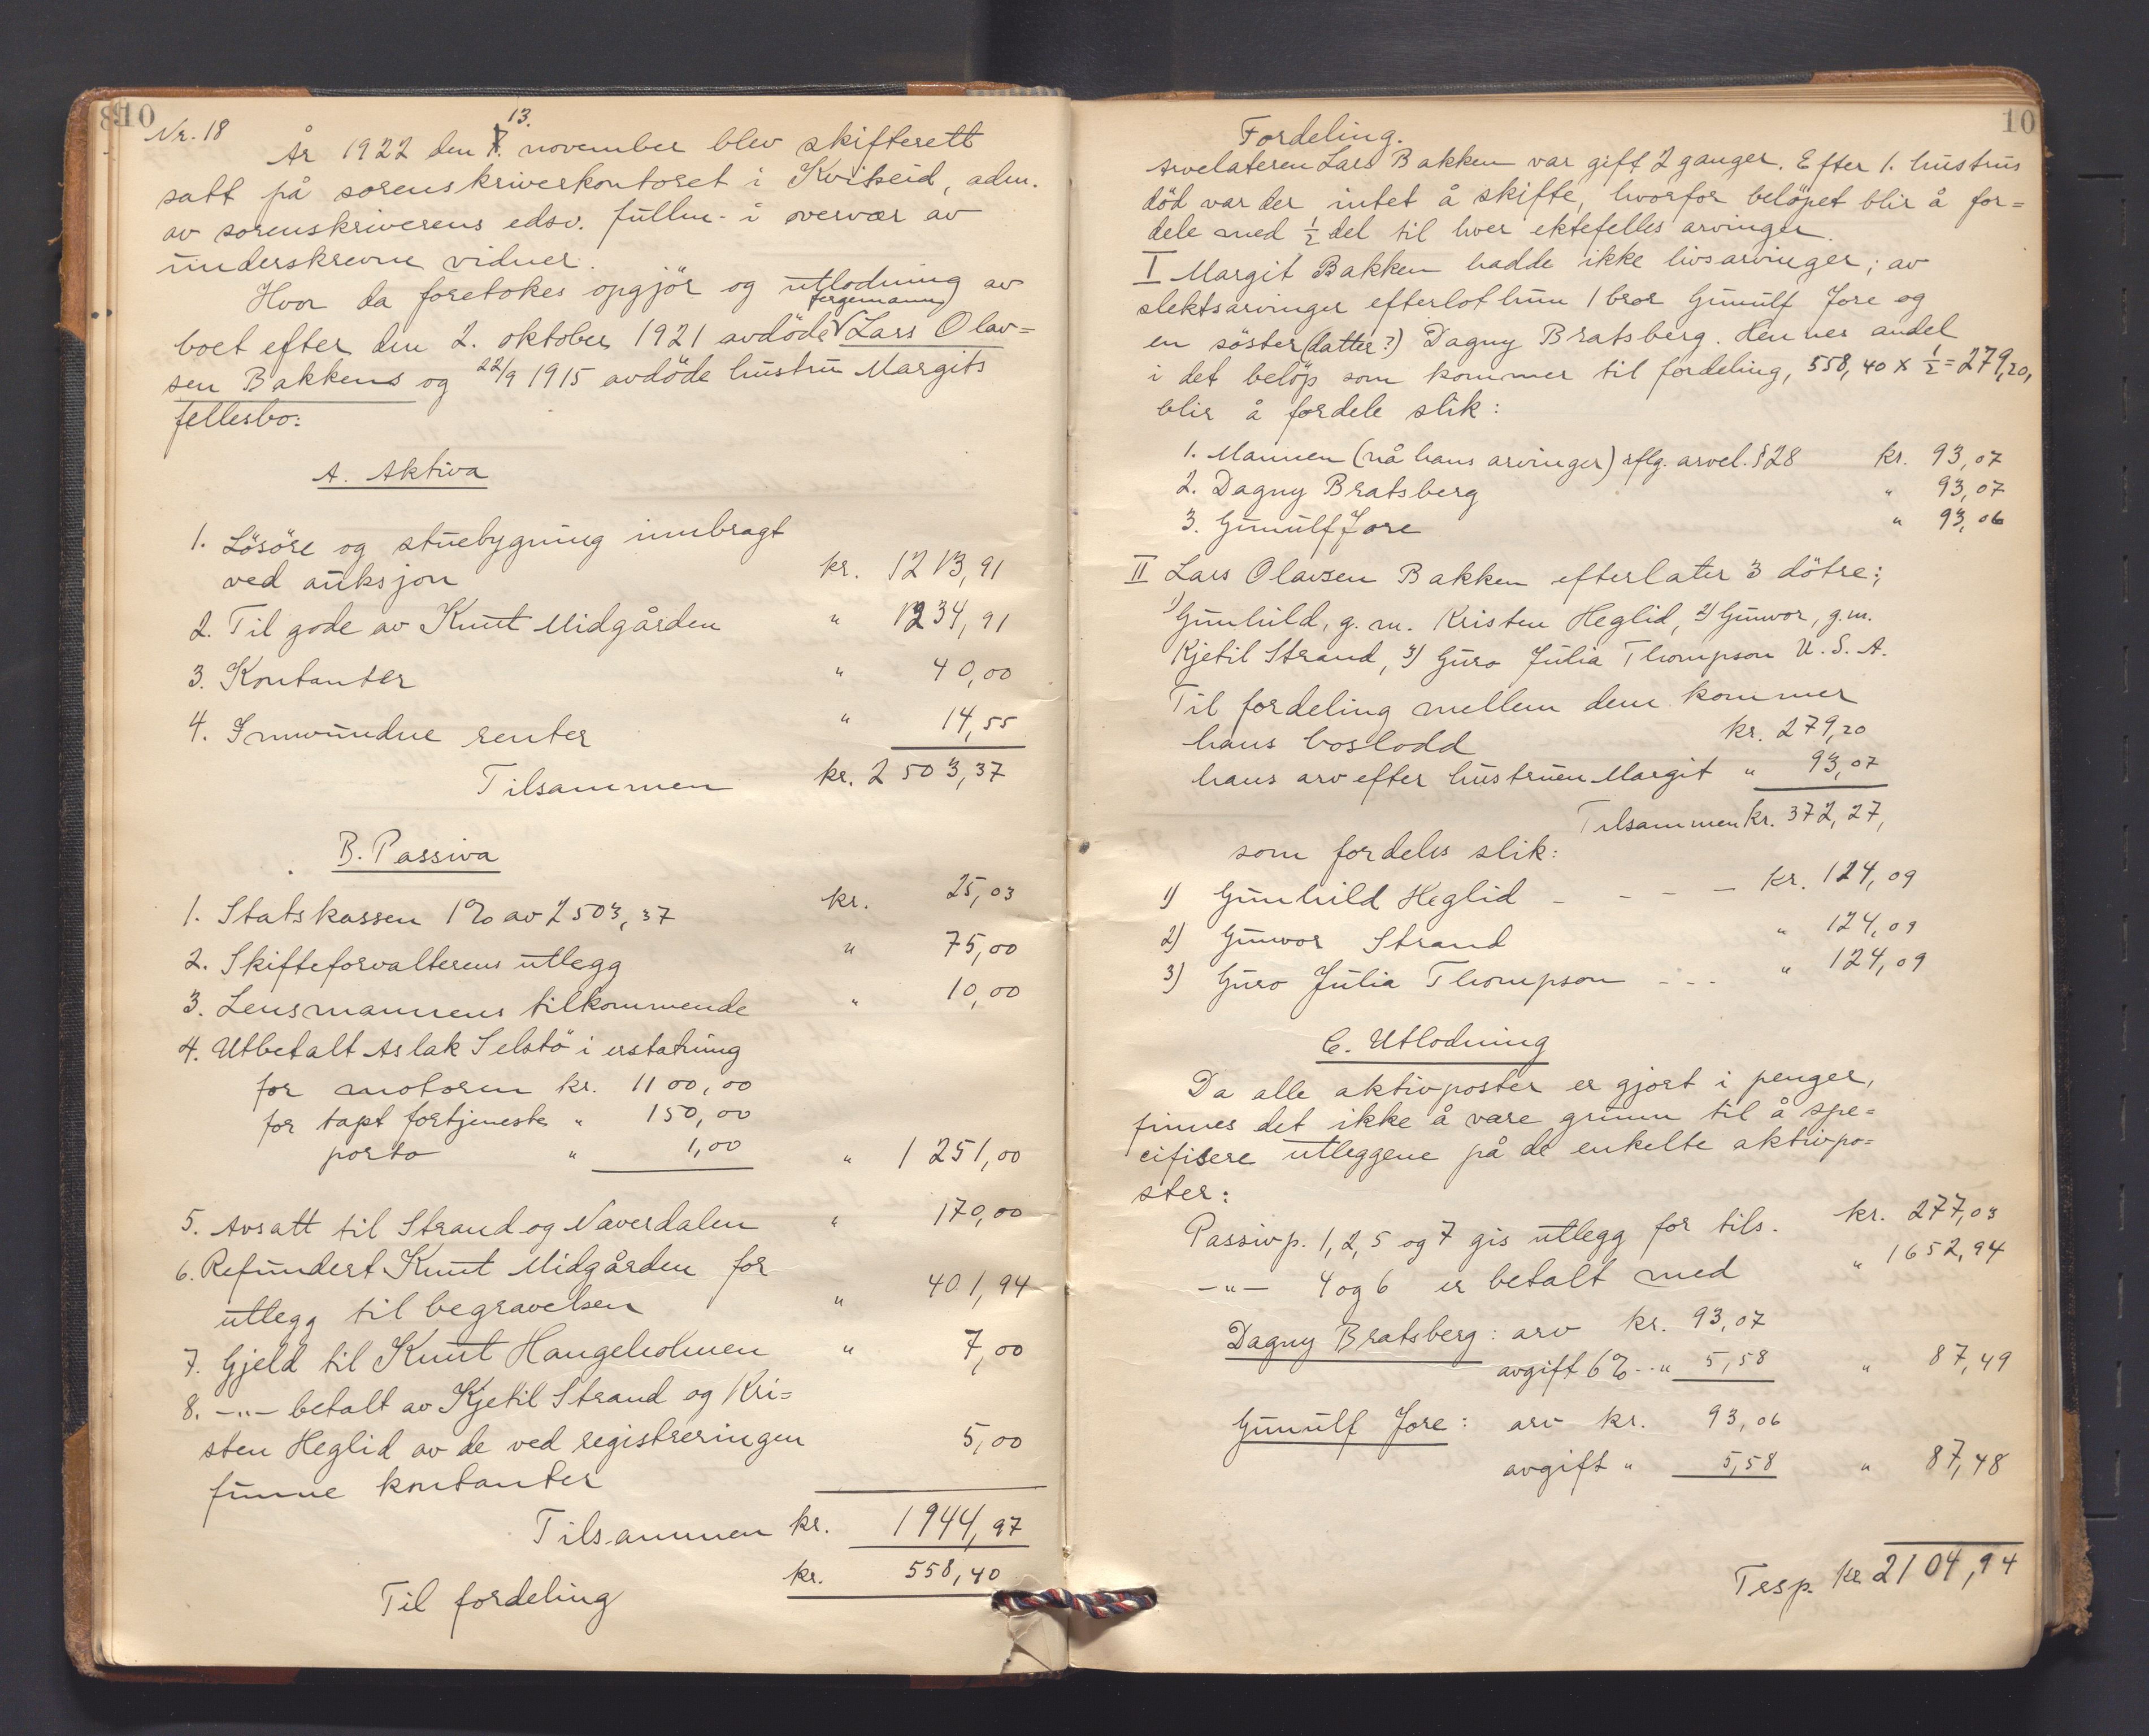 10
Nr. 18
13.
År 1922 den 7. november blev skifterett
satt på sorenskriverkontoret i Kviteseid, adm.
av sorenskriverens edsv. fullm. i overvær av
underskrevne vidner.
Hvor da foretokes opgjör og utlodning av
fergemann
boet efter den 2. oktober 1921 avdöde Lars Olav=
sen Bakkens og 22/9 1915 avdöde hustru Margits
fellesbo:
A. Aktiva
1. Lösöre og stuebygning innbragt
ved auksjon kr. 1213,91
2. Til gode av Knut Midgården " 1234,91
3. Kontanter " 40,00
4. Innvundne renter " 14,55
Tilsammen kr. 2503,37
B. Passiva
1. Statskassen 1% av 2503,37 kr. 25,03
2. Skifteforvalterens utlegg " 75,00
3. Lensmannens tilkommende " 10,00
4. Utbetalt Aslak Selstö i erstatning
for motoren kr. 1100,00
for tapt fortjeneste " 150,00
porto " 1,00 " 1251,00
5. Avsatt til Strand og Naverdalen " 170,00
6. Refundert Knut Midgården for
utlegg til begravelsen " 401,94
7. Gjeld til Knut Haugeholmen " 7,00
8. -"- betalt av Kjetil Strand og Kri=
sten Heglid av de ved registreringen 5,00
funne kontanter
Tilsammen kr. 1944,97
Til fordeling kr. 558,40
10
Fordeling.
Arvelateren Lars Bakken var gift 2 ganger. Efter 1. hustrus
död var der intet å skifte, hvorfor belöpet blir å for=
dele med 1/2 del til hver ektefelles arvinger.
I Margit Bakken hadde ikke livsarvinger; av
slektsarvinger efterlot hun 1 bror Gunulf Jore og
en söster (datter?) Dagny Bratsberg. Hennes andel
i det belöp som kommer til fordeling, 558,40 x 1/2 = 279,20,
blir å fordele slik:
1. Mannen (nå hans arvinger) iflg. arvel. § 28 kr. 93,07
2. Dagny Bratsberg " 93,07
3. Gunulf Jore " 93,06
II Lars Olavsen Bakken efterlater 3 dötre:
1) Gunhild, g. m. Kristen Heglid, 2) Gunvor, g. m.
Kjetil Strand, 3) Guro Julia Thompson U. S. A.
Til fordeling mellem dem kommer
hans boslodd kr. 279,20
hans arv efter hustruen Margit " 93,07
Tilsammen kr. 372,27,
som fordeles slik:
1) Gunhild Heglid - - - kr. 124,09
2) Gunvor Strand " 124,09
3) Guro Julia Thompson - - - " 124,09
C. Utlodning
Da alle aktivposter er gjort i penger,
finnes det ikke å være grunn til å spe=
cifisere utleggene på de enkelte aktivpo=
ster:
Passivp. 1, 2, 5 og 7 gis utlegg for tils. kr. 277,03
-"- 4 og 6 er betalt med " 1652,94
Dagny Bratsberg: arv kr. 93,07
avgift 6% - - " 5,58 " 87,49
Gunulf Jore: arv kr. 93,06
avgift " 5,58 " 87,48
Trsp. kr 2104,94